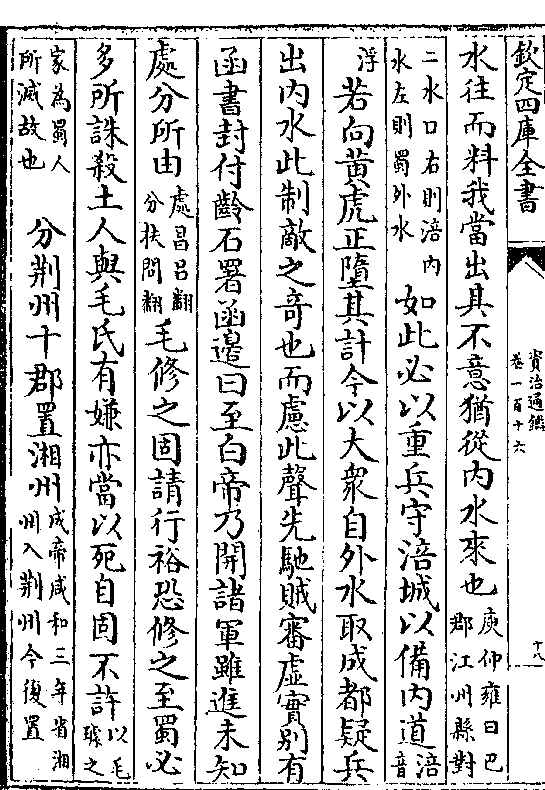 欽定四庫全書
水往而料我當出其不意猶從内水來也庾仲雍曰巴郡江州縣對
二水口右則涪内水左則蜀外水如此必以重兵守涪城以備内道涪音
浮若向黄虎正墮其計今以大衆自外水取成都疑兵
出内水此制敵之奇也而慮此聲先馳賊審虛實别有
函書封付齡石署函邊曰至白帝乃開諸軍雖進未知
處分所由處昌吕翻分扶問翻毛修之固請行裕恐修之至蜀必
多所誅殺土人與毛氏有嫌亦當以死自固不許以毛璩之
家為蜀人所滅故也分荆州十郡置湘州成帝咸和三年省湘州入荆州今復置
資治通鑑
卷一百十六
十八